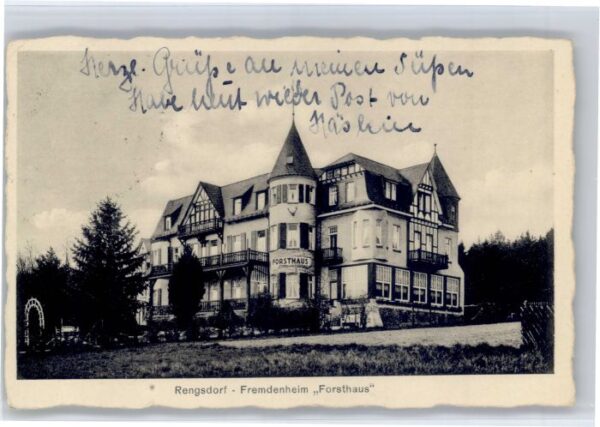 Herzl. Grüße an meinen Süßen
Habe heut wieder Post von
Häslein
FORSTHAUS
Rengsdorf - Fremdenheim „Forsthaus"